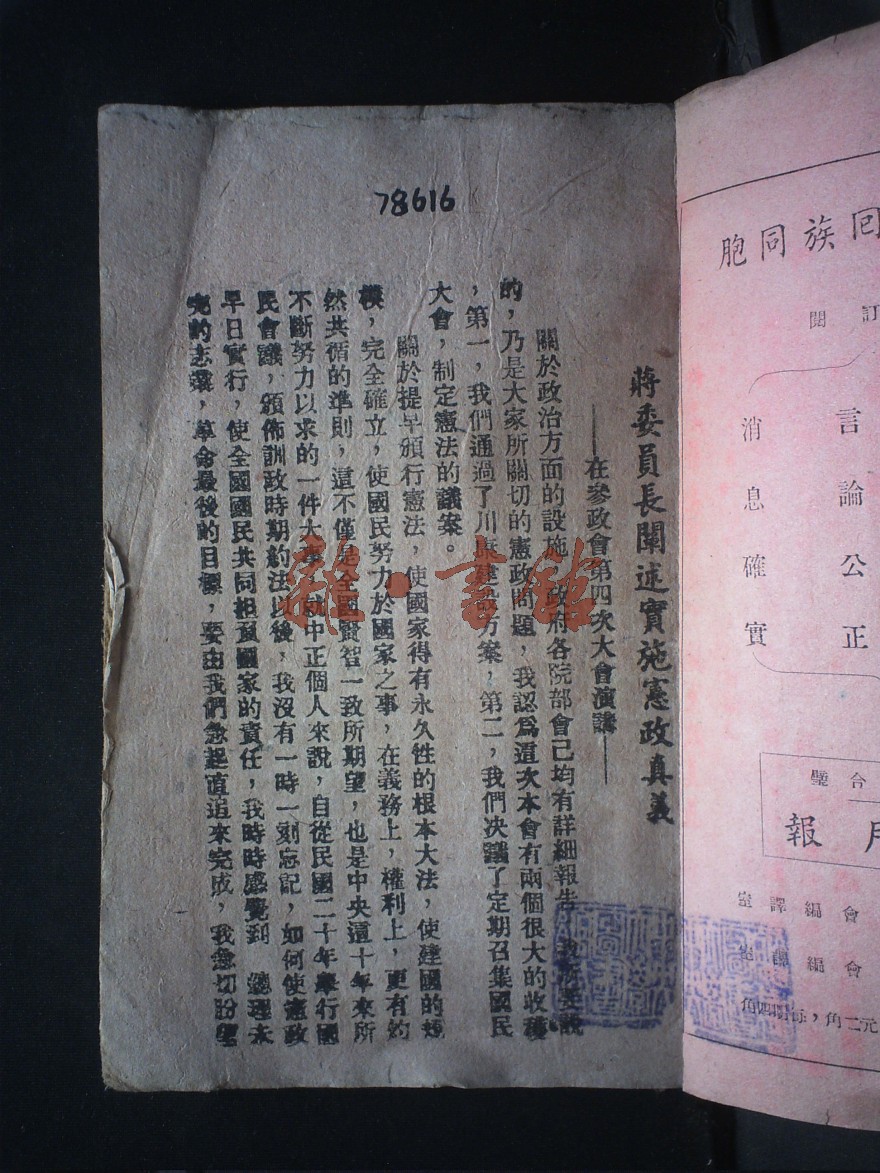 78616
蔣委員長闡述實施憲政真義
——在參政會第四次大會演講——
關於政治方面的設施,政府各院部會已均有詳細報告,我所要說
的,乃是大家所關切的憲政問題,我認爲這次本會有兩個很大的收穫
,第一,我們通過了川康建設方案,第二,我們決議了定期召集國民
大會,制定憲法的議案。
關於提早頒行憲法,使國家得有永久性的根本大法,使建國的規
模,完全確立,使國民努力於國家之事,在義務上,權利上,更有約
然共循的準則,這不僅是全國賢智一致所期望,也是中央這十年來所
不斷努力以求的一件大事,就中正個人來說,自從民國二十年舉行國
民會議,頒佈訓政時期約法以後,我沒有一時一刻忘記,如何使憲政
早日實行,使全國國民共同担負國家的責任,我時時感覺到 總理未
完的志業,革命最後的目標,要由我們急起直追來完成,我急切盼望
回族同胞
訂閱
言論公正
消息確實
合璧
月報
會編譯室
會編譯室
元二角,每期四角
龍·書館